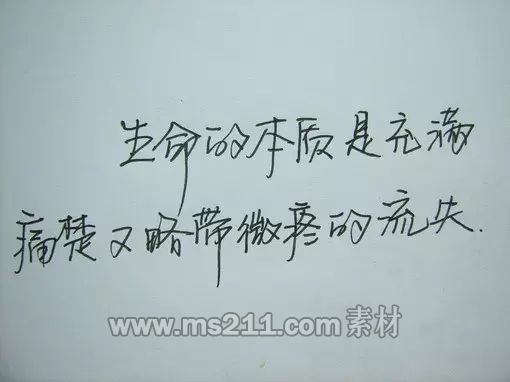 生命的本质是充满
痛楚又略带微疼的流失.
www.ms211.com 素材